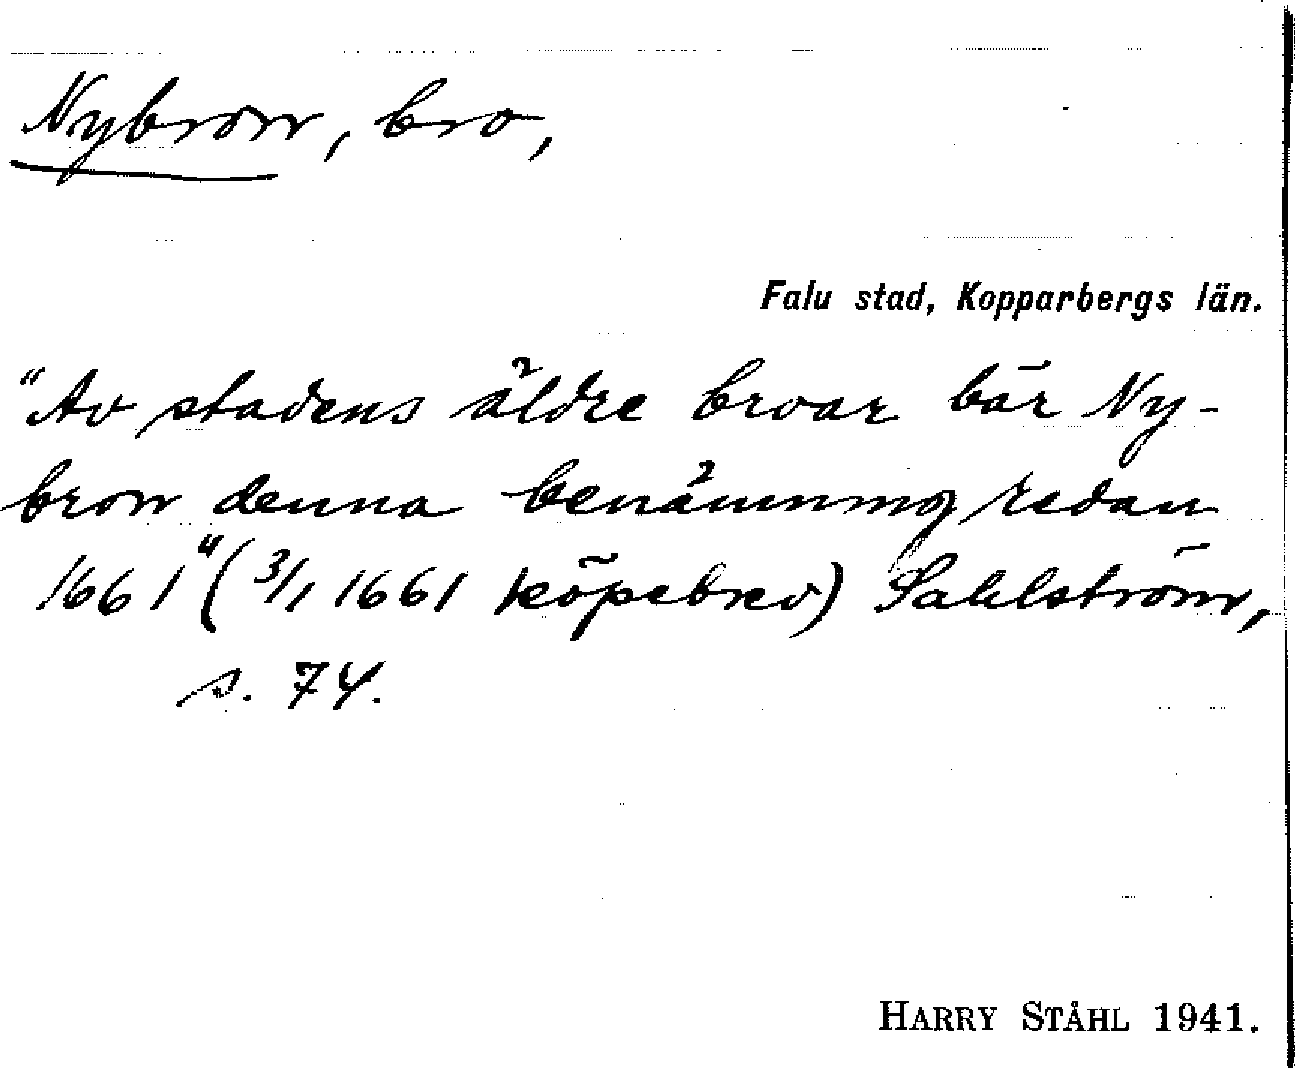 Nybron, bro,
Falu stad, Kopparbergs län.
"Av stadens äldre broar bär Ny-
bron denna benämning redan
1661" (3/1 1661 köpebrev) Sahlström,
s. 74.
HARRY STÅHL 1941.